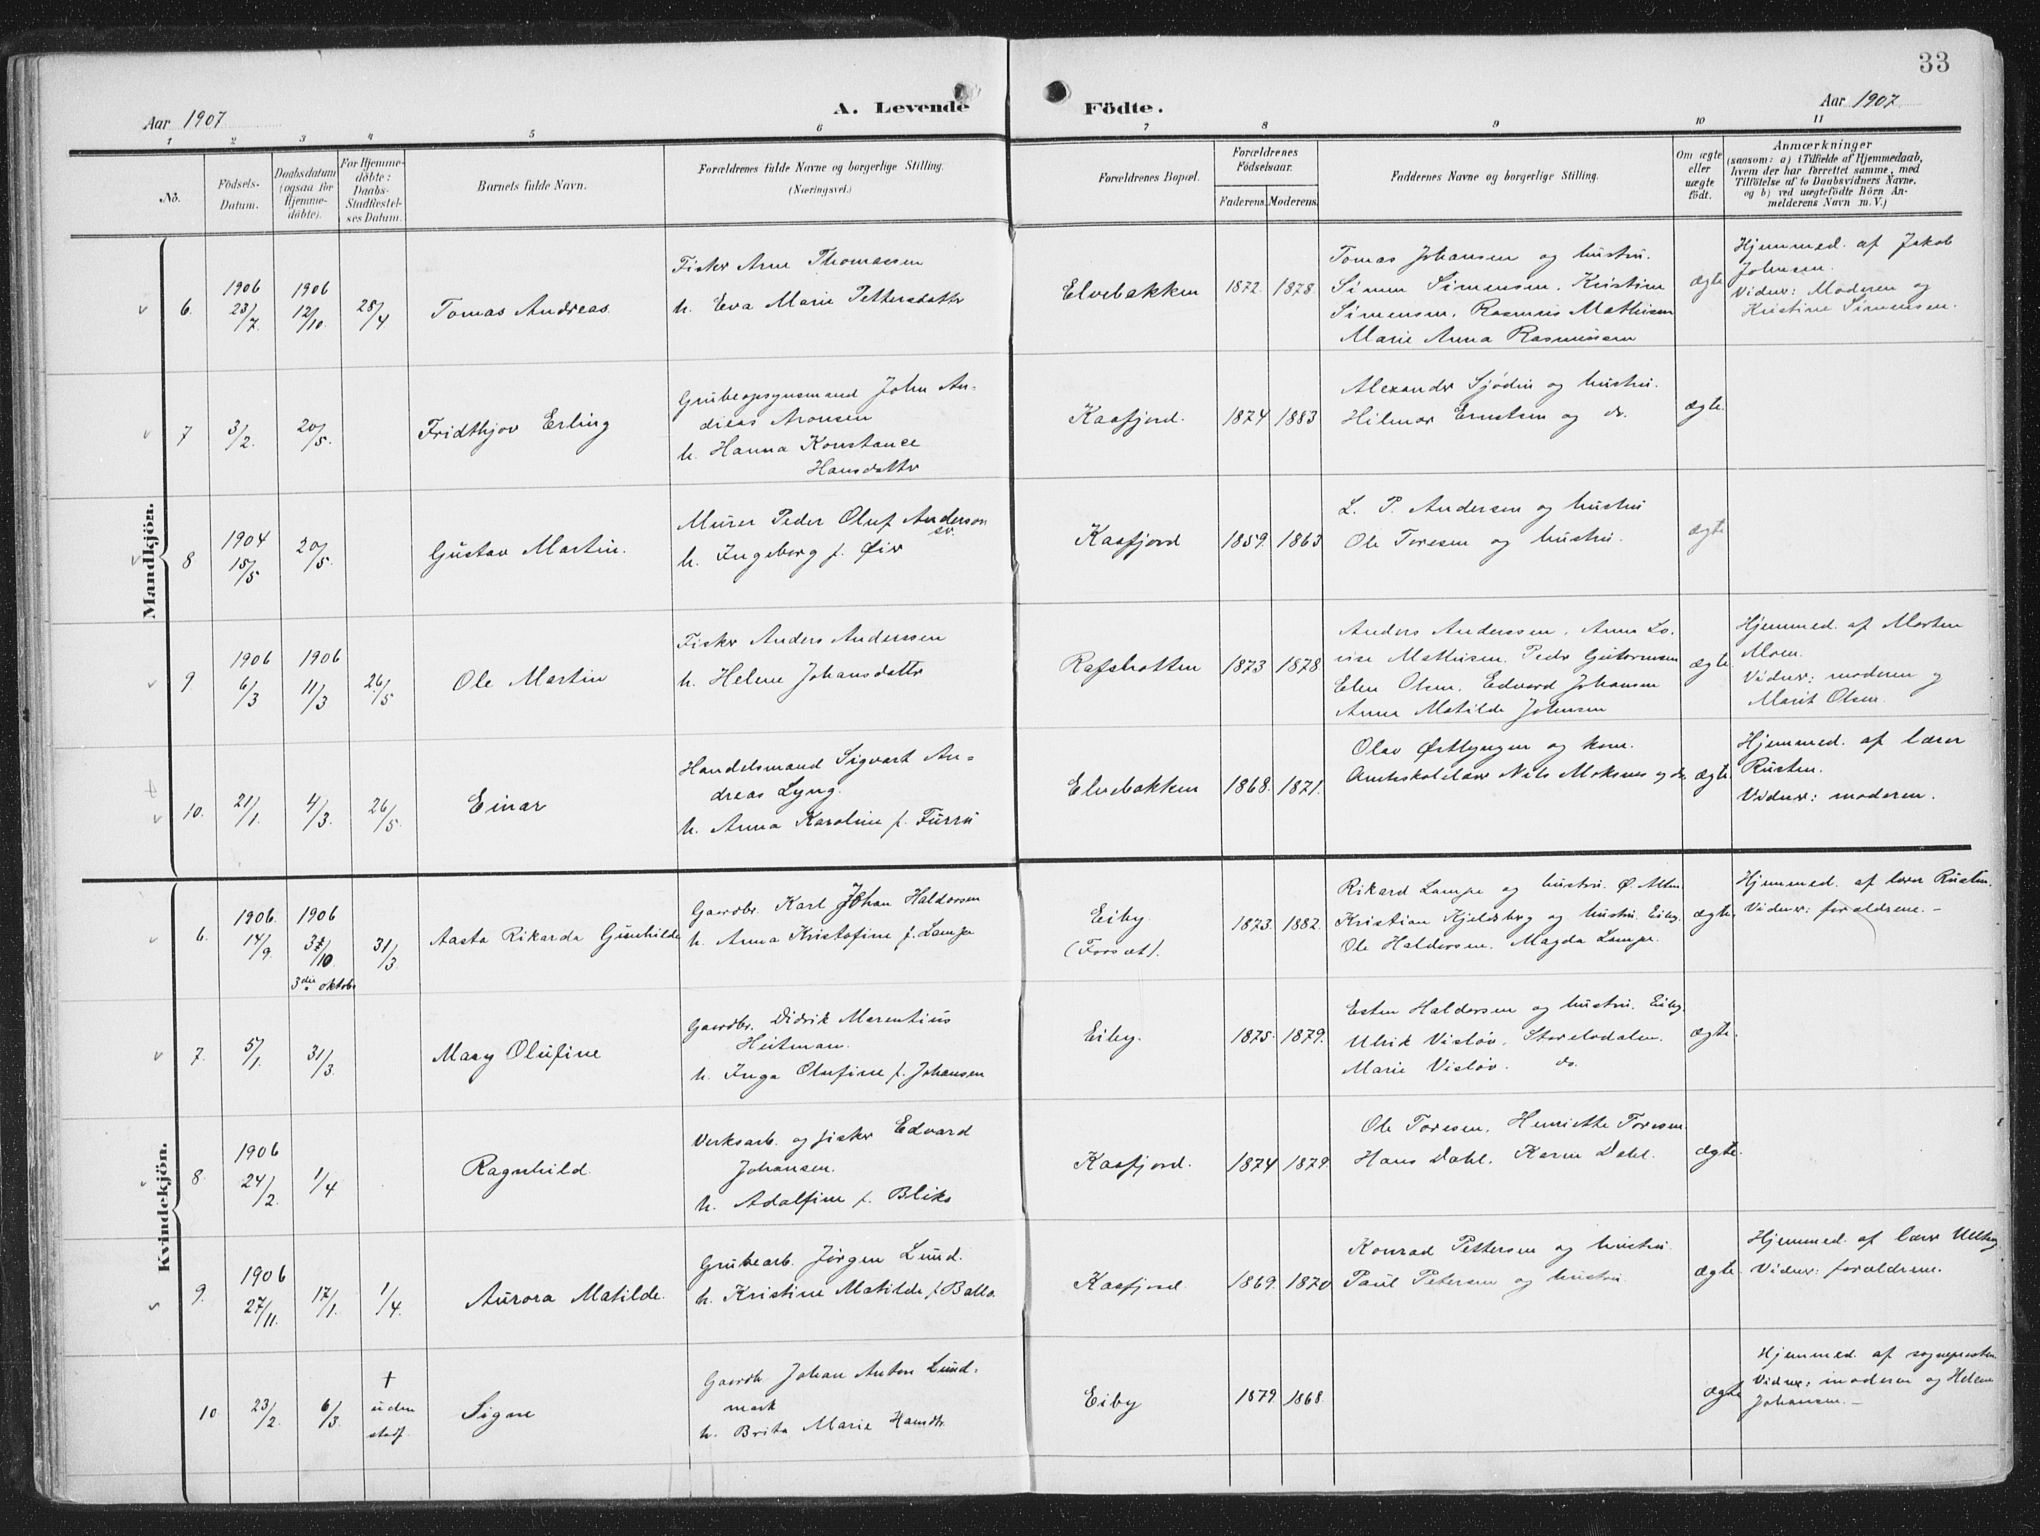 33
Aar 1907
A. Levende
Födte.
Aar 1907
1 2 3 4 5 6 7 8 9 10 11
No.
Födsels-
Datum.
Daabsdatum
(ogsaa for
Hjemme-
döbte).
For Hjemme-
döbte:
Daabs-
Stadfæstel-
ses Datum.
Barnets fulde Navn.
Forældrenes fulde Navne og borgerlige Stilling.
(Næringsvei.)
Forældrenes Bopæl.
Forældrenes
Födselsaar.
Faderens.
Moderens.
Faddernes Navne og borgerlige Stilling.
Om ægte
eller
uægte
födt.
Anmærkninger
(saasom: a) i Tilfælde af Hjemmedaab,
hvem der har forrettet samme, med
Tilföielse af to Daabsvidners Navne,
og b) ved uægtefödte Börn An-
melderens Navn m. V.)
Mandkjön.
6.
1906
23/7
1906
12/10
28/4
Tomas Andreas
Fisker Arne Thomassen
h. Eva Marie Pettersdatter
Elvebakken
1872.
1878.
Tomas Johansen og hustru.
Simen Simensen, Kristine
Simensen, Rasmus Mathisen
Marie Anna Rasmussen
ægte
Hjemmed. af Jakob
Johnsen.
Vidner: Moderen og
Kristine Simensen.
7
3/2.
20/5.
Fridthjov Erling
Grubeopsynsmand John An-
dreas Aronsen
h. Hanna Konstance
Hansdatter
Kaafjord.
1874
1883
Alexander Sjødin og hustru.
Hilmar Ernstsen og do.
ægte.
8
1904
15/5
20/5.
Gustav Martin.
Murer Peder Oluf Anderson
sv.
h. Ingeborg f. Øier
Kaafjord
1859.
1863
L. P. Andersen og hustru
Ole Toresen og hustru.
ægte
9
1906
6/3
1906
11/3
26/5
Ole Martin
Fisker Anders Anderssen
h. Helene Johansdatter
Rafsbotten
1873
1878
Anders Anderssen, Anna Lo-
vise Mathisen, Peder Gutormsen
Elen Olsen, Edvard Johansen
Anna Matilde Johnsen
ægte
Hjemmed. af Morten
Moen.
Vidner: moderen og
Marit Olsen.
10.
21/1.
4/3.
26/5.
Einar
Handelsmand Sigvart An-
dreas Lyng.
h. Anna Karoline f. Furru
Elvebakken
1868.
1871.
Olav Østlyngen og kone.
Amtsskolelærer Nils Moksnes og do.
ægte
Hjemmed. af lærer
Rusten.
Vidner: moderen.
Kvindekjön.
6.
1906.
14/9
1906
3/10.
3die oktober
31/3.
Aasta Rikarda Gunhilde
Gaardbr. Karl Johan Haldorsen
h. Anna Kristofine f. Lampe
Eiby.
(Forsæt).
1873.
1882.
Rikard Lampe og hustru. Ø. Alten
Kristian Kjeldsberg og hustru. Eiby.
Ole Haldorsen, Magda Lampe.
ægte.
Hjemmed. af lærer Rusten.
Vidner: forældrene. -
7.
5/1.
31/3.
Mary Olufine
Gaardbr. Didrik Marentius
Heitman.
h. Inga Olufine f. Johansen
Eiby.
1875.
1879.
Esten Haldorsen og hustru. Eiby.
Ulrik Visløv, Storelvdalen.
Marie Visløv. do.
ægte.
8.
1906
24/2.
1/4
Ragnhild.
Verksarb. og fisker Edvard
Johansen.
h. Adolfine f. Bliks
Kaafjord.
1874
1879.
Ole Toresen, Henriette Toresen
Hans Dahl, Karen Dahl.
ægte.
9.
1906
27/11.
17/1.
1/4.
Aurora Matilde.
Grubearb. Jørgen Lund.
h. Kristine Matilde f. Ballo
Kaafjord.
1869.
1870
Konrad Pettersen og hustru.
Paul Petersen og hustru
ægte.
Hjemmed. af lærer
Vidner: forældrene.
10
23/2.
6/3.
†
uden
stadf.
Signe
Gaardb. Johan Anton Lund-
mark
h. Brita Marie Hansdtr.
Eiby
1879.
1868.
ægte
Hjemmed. af sognepresten
Vidner: moderen og Helene
Johansen. -